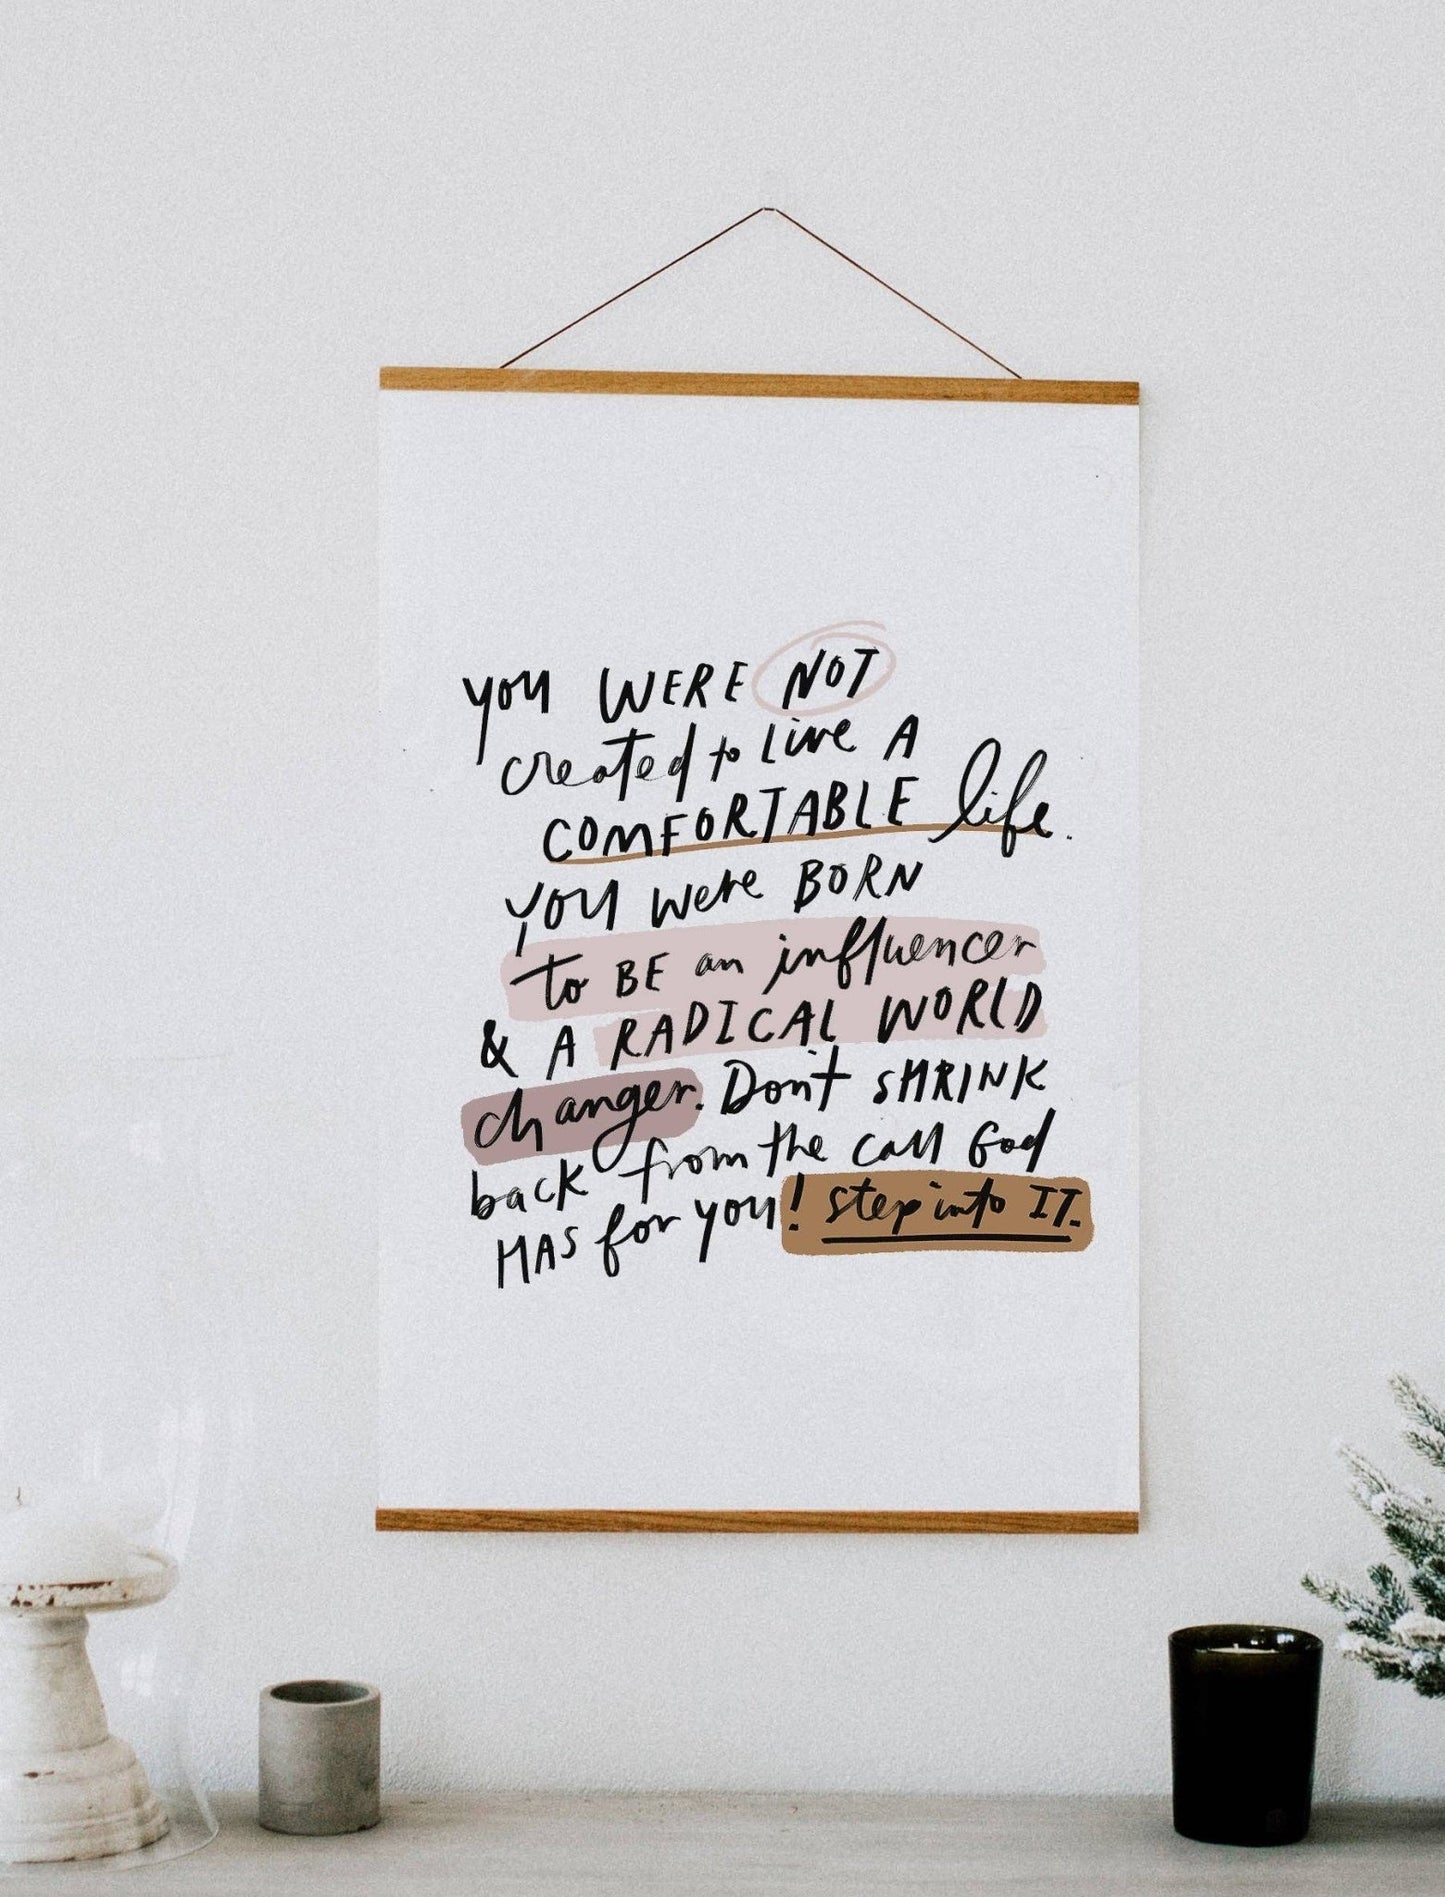 you WERE NOT
created to Live A
COMFORTABLE life.
you were BORN
to BE an influencer
& A RADICAL WORLD
changer. Don't SHRINK
back from the call God
HAS for you! step into IT.